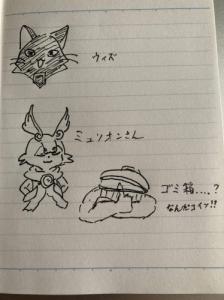 ウィズ
ミュリオンさん
ゴミ箱....?
なんだコイツ!!